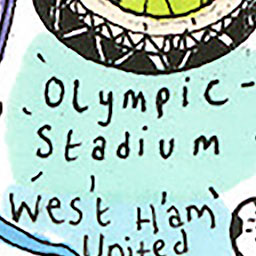 Olympic-
Stadium
West Ham
United